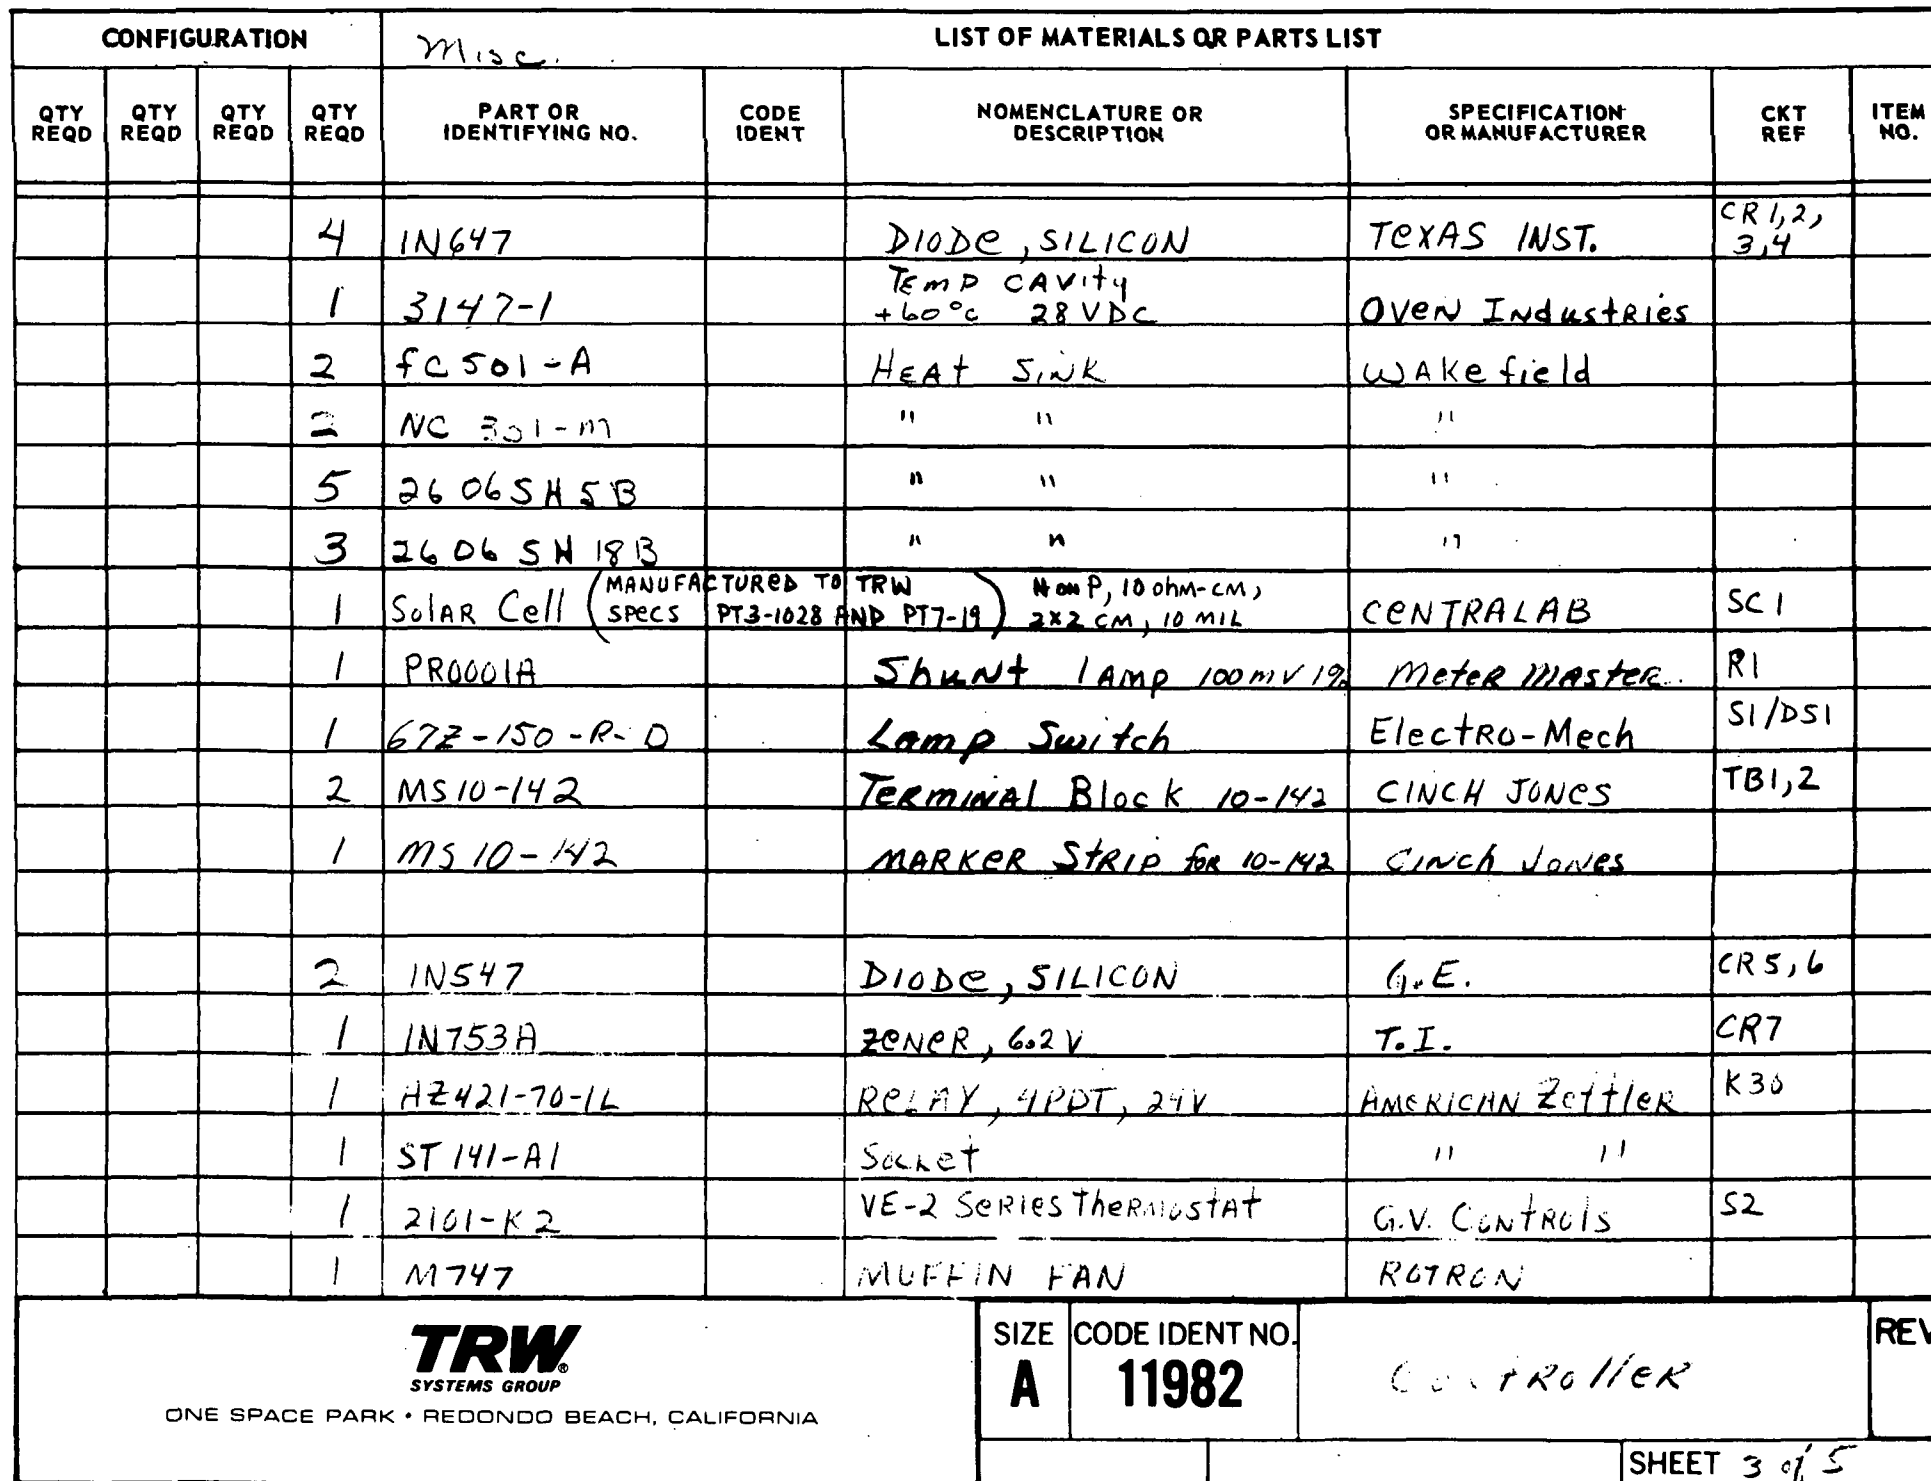 CONFIGURATION Misc. LIST OF MATERIALS OR PARTS LIST
QTY REQD QTY REQD QTY REQD QTY REQD PART OR IDENTIFYING NO. CODE IDENT NOMENCLATURE OR DESCRIPTION SPECIFICATION OR MANUFACTURER CKT REF ITEM NO.
4 1N647 DIODe, SILICON TeXAS INST. CR 1,2, 3,4
1 3147-1 TEmP CAVity +60°c 28 VDC OVeN INdustRies
2 fC 501-A HEAt SiNK WAKe field
2 NC 301-m " " "
5 2606SH5B " " "
3 2606 SH 18B " " "
1 SolAR Cell (MANUFACTUReD TO TRW SPecs PT3-1028 AND PT7-19) N on P, 10 ohm-cm, 2x2 cm, 10 MIL CeNTRALAB SC1
1 PR0001A ShuNt 1 AMP 100mV 1% MeteR MAsteR R1
1 67Z-150-R-D Lamp Switch ElectRo-Mech S1/DS1
2 MS10-142 TeRMiNAl Block 10-142 CINCH JONes TB1,2
1 MS 10-142 MARKeR StRip foR 10-142 CiNch JoNes
2 1N547 DIODe, SILICON G.E. CR5,6
1 1N753A ZeNeR, 6.2V T.I. CR7
1 AZ421-70-1L ReLAY, 4PDT, 24V AMeRICAN ZettleR K30
1 ST 141-A1 Socket " "
1 2101-K2 VE-2 SeRies TheRmostAt G.V. CoNtRols S2
1 M747 MUFFIN FAN ROTRON
TRW®
SYSTEMS GROUP
ONE SPACE PARK • REDONDO BEACH, CALIFORNIA
SIZE A CODE IDENT NO. 11982 CoNtRolleR REV
SHEET 3 of 5